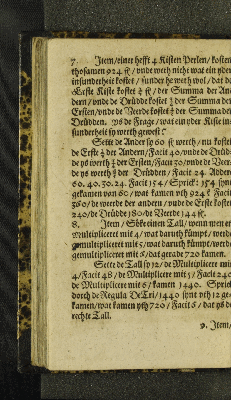 7. Item/einer hefft 4 Kisten Perlen/kosten
thosamen 924 fl/vnde weth nicht wat ein yder
insunderheit kostet/sunder he weth wol/dat de
Erste Kiste kostet fl/der Summa der An
dern/vnde de Drüdde kostet der Summa der
Ersten/vnde de Veerde kostet der Summa der
Drüdden. ys de Frage/wat ein yder Kiste in
sunderheit sy werth gewest?
Sette de Ander sy 60 fl werth/nu kostet
de Erste der Andern/Facit 40/vnde de Drüd
de ys werth der Ersten/Facit 30/vnde de Veer
de ys werth der Drüdden/Facit 24. Addere
60. 40. 30. 24. Facit 154/Sprick: 154 syn
gekamen van 60/wat kamen vth 924 Facit
360/de weerde der andern/vnde de Erste kostet
240/de Drüdde 180/de Veerde 144 fl.
8. Item/Söke einen Tall/wenn men en
Multipliceret mit 4/wat daruth kümpt/werde
gemultipliceret mit 5/wat daruth kümpt/werde
gemultipliceret mit 6/dat gerade 720 kamen.
Sette de Tall sy 12/de Multiplicere mit
4/Facit 48/de Multiplicere mit 5/Facit 240
de Multiplicere mit 6/kamen 1440. Sprick
dorch de Regula DeTri/1440 synt vth 12 ge-
kamen/wat kamen vth 720/Facit 6/dat ys de
rechte Tall.
9. Item/